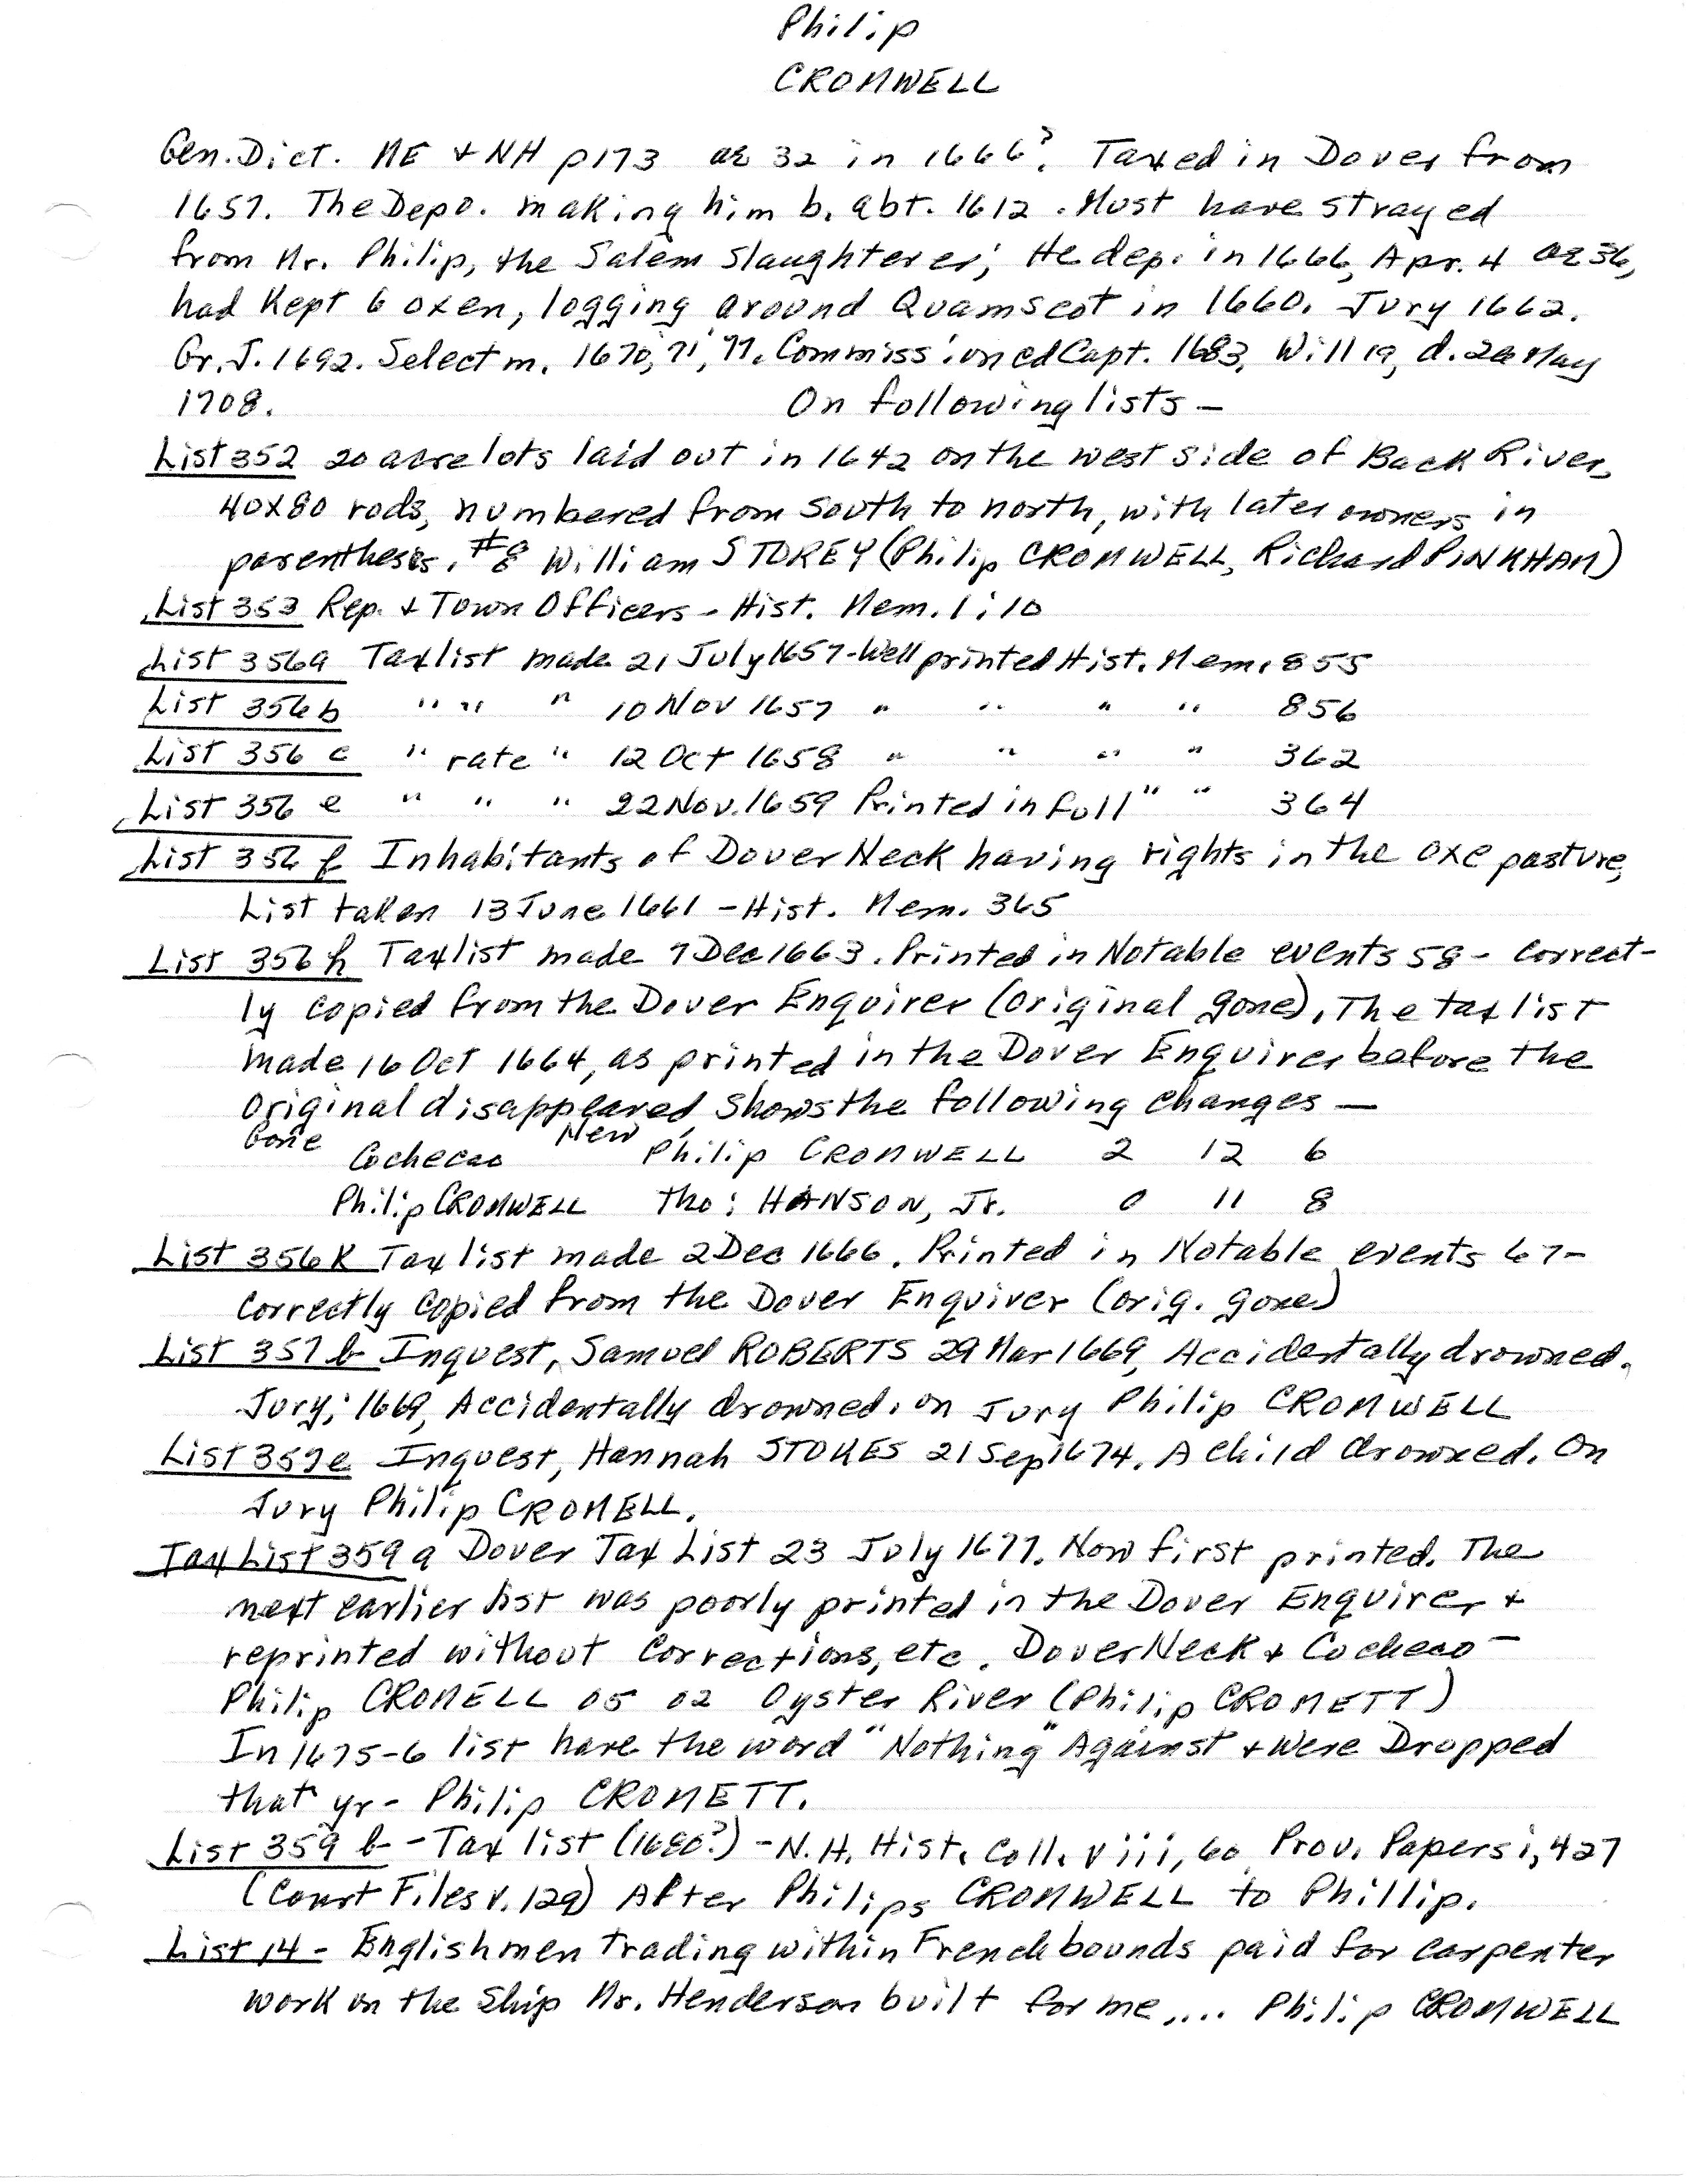 Philip
CROMWELL
Gen. Dict. ME & NH p173 ae 32 in 1666?. Taxed in Dover from
1657. The Depo. making him b. abt. 1612. Must have strayed
from Mr. Philip, the Salem slaughterer; He dep. in 1666, Apr. 4 ae 36,
had Kept 6 oxen, logging around Quamscot in 1660. Jury 1662.
Gr. J. 1692. Selectm. 1670, 71, 77. Commissioned Capt. 1683. Will 19, d. 26 May
1708. On following lists —
List 352 20 acre lots laid out in 1642 on the west side of Back River,
40x80 rods, numbered from South to north, with later owners in
parenthesis. #8 William STOREY (Philip CROMWELL, Richard PINKHAM)
List 353 Rep. & Town Officers - Hist. Mem. 1:10
List 356a Taxlist made 21 July 1657 - Well printed Hist. Mem. 855
List 356b " " " 10 Nov 1657 " " " " 856
List 356 c " rate " 12 Oct 1658 " " " " 362
List 356 e " " " 22 Nov. 1659 Printed in full " " 364
List 356 f Inhabitants of Dover Neck having rights in the oxe pasture,
List taken 13 June 1661 - Hist. Mem. 365
List 356 h Taxlist made 7 Dec 1663. Printed in Notable events 58 - correct-
ly copied from the Dover Enquirer (original gone). The tax list
made 16 Oct 1664, as printed in the Dover Enquirer before the
original disappeared, Shows the following changes —
Gone Cochecao New Philip CROMWELL 2 12 6
Philip CROMWELL Tho: HANSON, Jr. 0 11 8
List 356 K Tax list made 2 Dec 1666. Printed in Notable events 67-
correctly copied from the Dover Enquirer (orig. gone)
List 357 b Inquest, Samuel ROBERTS 29 Mar 1669, Accidentally drowned.
Jury; 1669, Accidentally drowned. on Jury Philip CROMWELL
List 357e Inquest, Hannah STOKES 21 Sep 1674. A child drowned. On
Jury Philip CROMELL.
Tax List 359 a Dover Tax List 23 July 1677. Now first printed. The
next earlier list was poorly printed in the Dover Enquirer &
reprinted without corrections, etc. Dover Neck & Cocheao —
Philip CROMELL 05 02 Oyster River (Philip CROMETT)
In 1675-6 list have the word "Nothing" Against & Were Dropped
that yr - Philip CROMETT.
List 359 b - Tax list (1680?) - N.H. Hist. Coll. viii, 60 Prov. Papers i, 427
(Court Files v. 129) After Philips CROMWELL to Phillip.
List 14 - Englishmen trading within French bounds paid for carpenter
work on the Ship Mr. Henderson built for me .... Philip CROMWELL